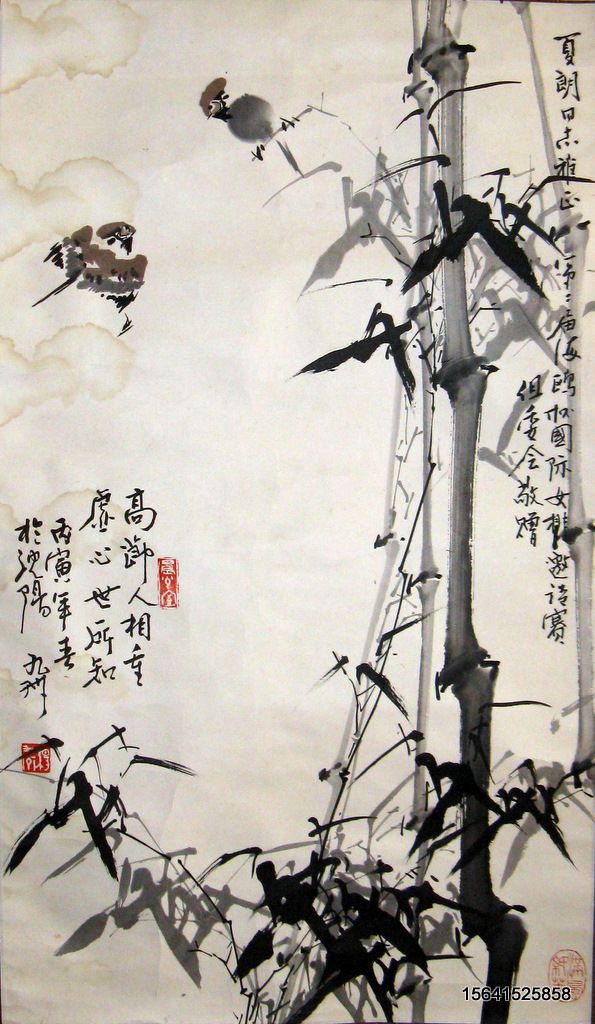 夏朗同志雅正 第二届海鸥杯國际女排邀请赛
组委会敬赠
高節人相重
虚心世所知
丙寅年春
於陽 九洲
15641525858